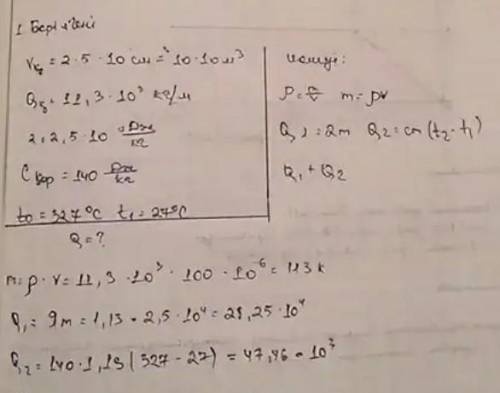 1 Берілгені
V қ = 2 · 5 · 10 см = 10 · 10 м³
ρ қ = 11,3 · 10³ кг/м
λ = 2,5 · 10 Дж/кг
C қор = 140 Дж/кг
t₀ = 327°C t₁ = 27°C
Q = ?
Шешуі:
ρ = m/V m = ρV
Q₁ = λm Q₂ = cm(t₂ - t₁)
Q₁ + Q₂
m = ρ · V = 11,3 · 10³ · 100 · 10⁻⁶ = 113 к
Q₁ = λm = 1,13 · 2,5 · 10⁴ = 28,25 · 10⁴
Q₂ = 140 · 1,13 (327 - 27) = 47,46 · 10³